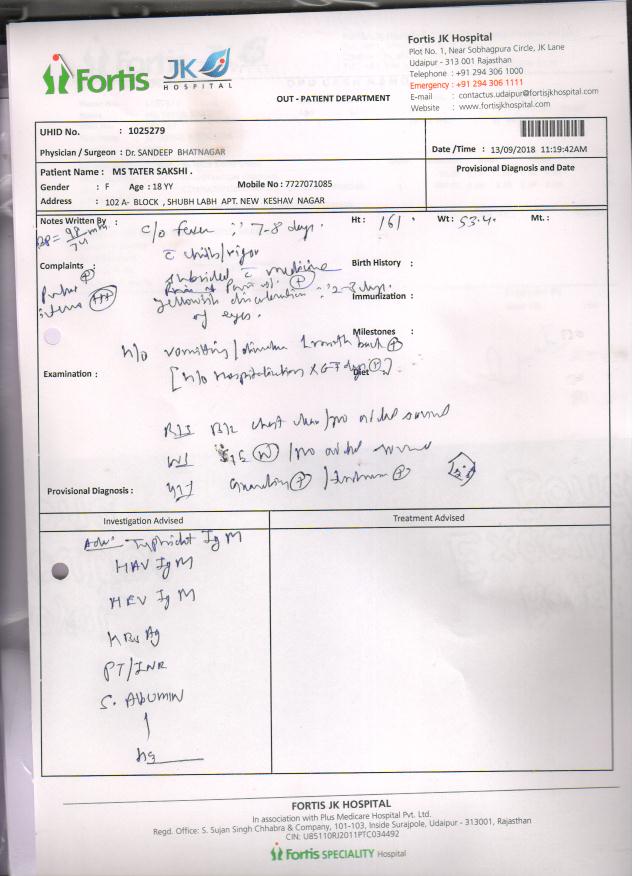 Fortis JK HOSPITAL
Fortis JK Hospital
Plot No. 1, Near Sobhagpura Circle, JK Lane
Udaipur - 313 001 Rajasthan
Telephone : +91 294 306 1000
Emergency : +91 294 306 1111
E-mail : contactus.udaipur@fortisjkhospital.com
Website : www.fortisjkhospital.com
OUT - PATIENT DEPARTMENT
UHID No. : 1025279
Physician / Surgeon : Dr. SANDEEP BHATNAGAR
Date /Time : 13/09/2018 11:19:42AM
Patient Name : MS TATER SAKSHI .
Provisional Diagnosis and Date
Gender : F Age : 18 YY Mobile No : 7727071085
Address : 102 A- BLOCK , SHUBH LABH APT. NEW KESHAV NAGAR
Notes Written By : c/o fever 7-8 days. Ht : 161 Wt : 53.4. Mt. :
BP = 98/74
c chills/rigor
Complaints : c medicine Birth History :
yellowish discoloration 2-3 days. Immunization :
of eyes.
Milestones :
h/o vomiting / 1 month back
Examination : [h/o hospitalization Diet :
B/L chest clear / no added sound
/ no added sound
Provisional Diagnosis :
Investigation Advised
Treatment Advised
Adv: Typhidot IgM
HAV IgM
HEV IgM
HBs Ag
PT/INR
S. Albumin
FORTIS JK HOSPITAL
In association with Plus Medicare Hospital Pvt. Ltd.
Regd. Office: S. Sujan Singh Chhabra & Company, 101-103, Inside Surajpole, Udaipur - 313001, Rajasthan
CIN: U85110RJ2011PTC034492
Fortis SPECIALITY Hospital